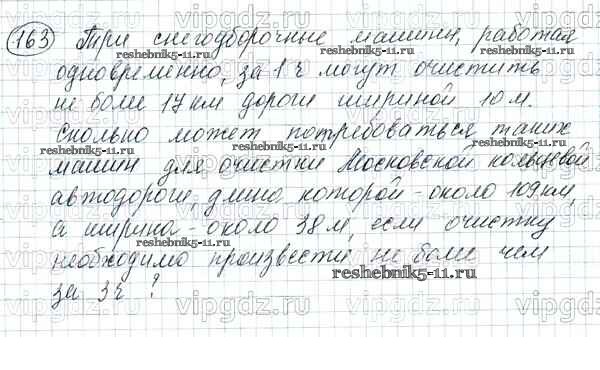 163 Три снегоуборочные машины, работая
одновременно, за 1 ч могут очистить
не более 17 км дороги шириной 10 м.
Сколько может потребоваться таких
машин для очистки Московской кольцевой
автодороги, длина которой - около 109 км,
а ширина - около 38 м, если очистку
необходимо произвести не более чем
за 3 ч ?
vipgdz.ru
reshebnik5-11.ru
vipgdz.ru
reshebnik5-11.ru
reshebnik5-11.ru
reshebnik5-11.ru
reshebnik5-11.ru
reshebnik5-11.ru
vipgdz.ru
vipgdz.ru